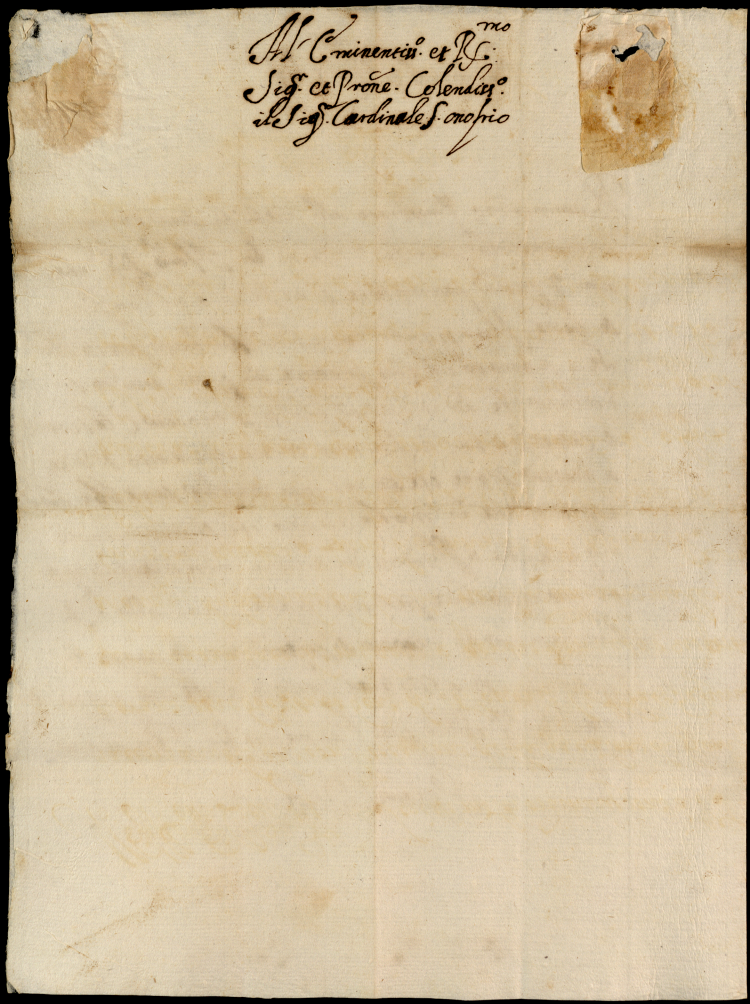 Al' Eminentiss.º et R.mo
Sig.r et Prone. Colendiss.º
il Sig.r Cardinale S. onofrio